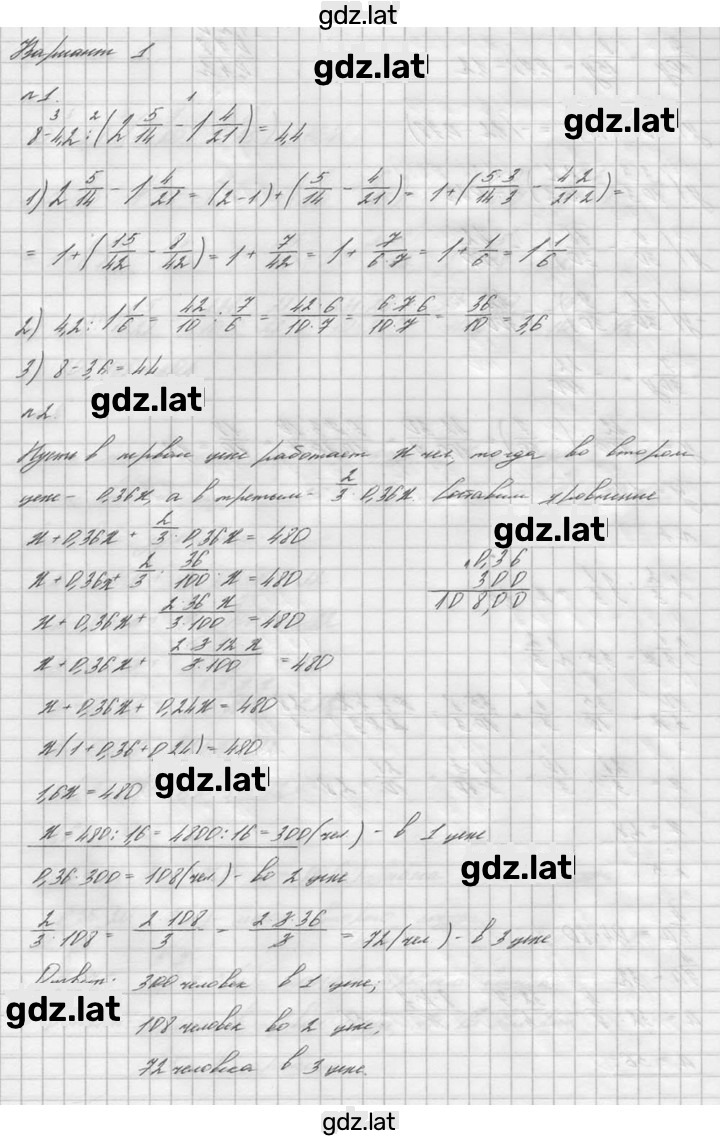 gdz.lat
Вариант 1
gdz.lat
№1.
3 2 1
8-4,2:(2 5/14 - 1 4/21) = 4,4
gdz.lat
1) 2 5/14 - 1 4/21 = (2-1)+(5/14 - 4/21) = 1+(5·3/14·3 - 4·2/21·2) =
= 1+(15/42 - 8/42) = 1+ 7/42 = 1+ 7/6·7 = 1+ 1/6 = 1 1/6
2) 4,2: 1 1/6 = 42/10 : 7/6 = 42·6/10·7 = 6·7·6/10·7 = 36/10 = 3,6
3) 8-3,6 = 4,4
gdz.lat
№2.
Пусть в первом цехе работает x чел, тогда во втором
цехе - 0,36x, а в третьем - 2/3 · 0,36x. Составим уравнение
gdz.lat
x+0,36x + 2/3 · 0,36x = 480
x+0,36x+ 2/3 · 36/100 · x = 480
x+0,36x+ 2·36·x/3·100 = 480
x+0,36x+ 2·3·12·x/3·100 = 480
0,36
300
108,00
x+0,36x+0,24x = 480
x(1+0,36+0,24) = 480
1,6x = 480
gdz.lat
x = 480:1,6 = 4800:16 = 300(чел) - в 1 цехе
0,36·300 = 108(чел) - во 2 цехе
gdz.lat
2/3 · 108 = 2·108/3 = 2·3·36/3 = 72(чел) - в 3 цехе
Ответ: 300 человек в 1 цехе;
gdz.lat
108 человек во 2 цехе;
72 человека в 3 цехе.
gdz.lat